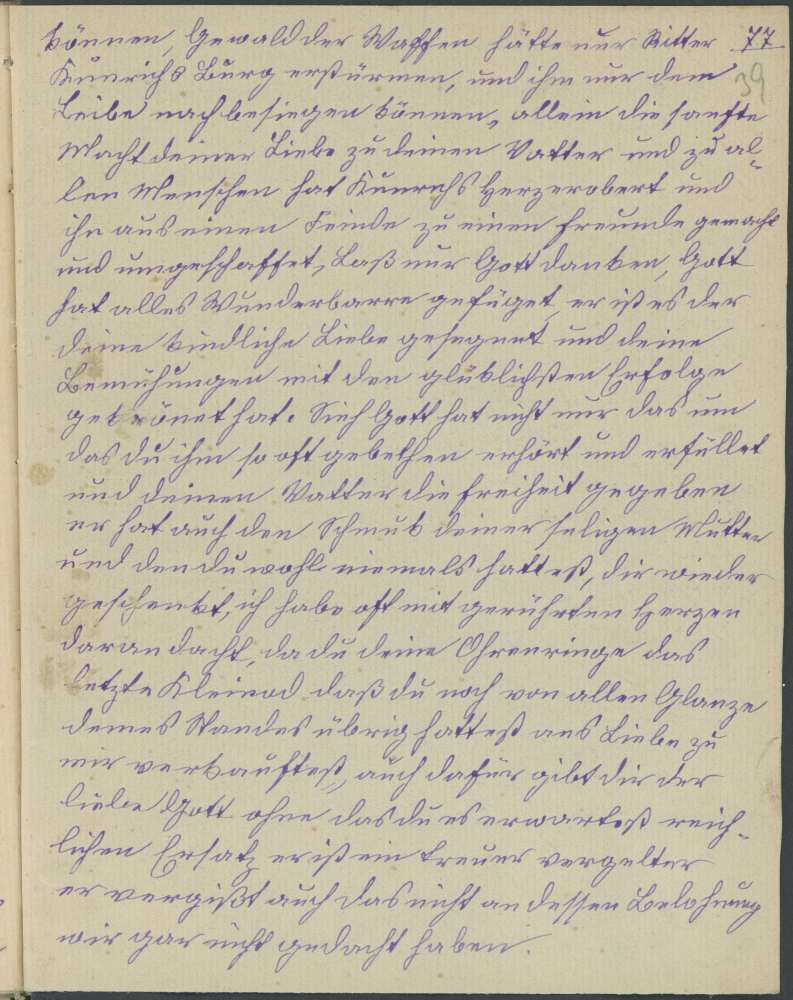 können, Gewald der Waffen hätte nur Ritter 77
Kunrichs Burg erstürmen, und ihm nur dem 39
Leibe nach besiegen können, allein die sanfte
Macht deiner Liebe zu deinen Vatter und zu al-
len Menschen hat Kunrichs Herz erobert und
ihn aus einen Feinde zu einen Freunde gemacht
und umgeschaffet, Laß nur Gott danken, Gott
hat alles Wunderbarre gefüget, er ist es der
deine kindliche Liebe gesegnet und deine
Bemühungen mit den glüklichsten Erfolge
gekrönet hat. Sieh Gott hat nicht nur das um
das du ihm so oft gebethen erhört und erfüllet
und deinen Vatter die Freiheit gegeben
er hat auch den Schmuk deiner seligen Mutter
und den du wohl niemals hattest, dir wieder
geschenkt, ich habe oft mit gerührten Herzen
daran dacht, da du deine Ohrenringe das
letzte Kleinod daß du noch von allen Glanze
deines Standes übrig hattest aus Liebe zu
mir verkauftest, auch dafür gibt dir der
liebe Gott ohne das du es erwartest reich-
lichen Ersatz er ist ein treuer vergelter
er vergißt auch das nicht an dessen Belohnung
wir gar nicht gedacht haben.